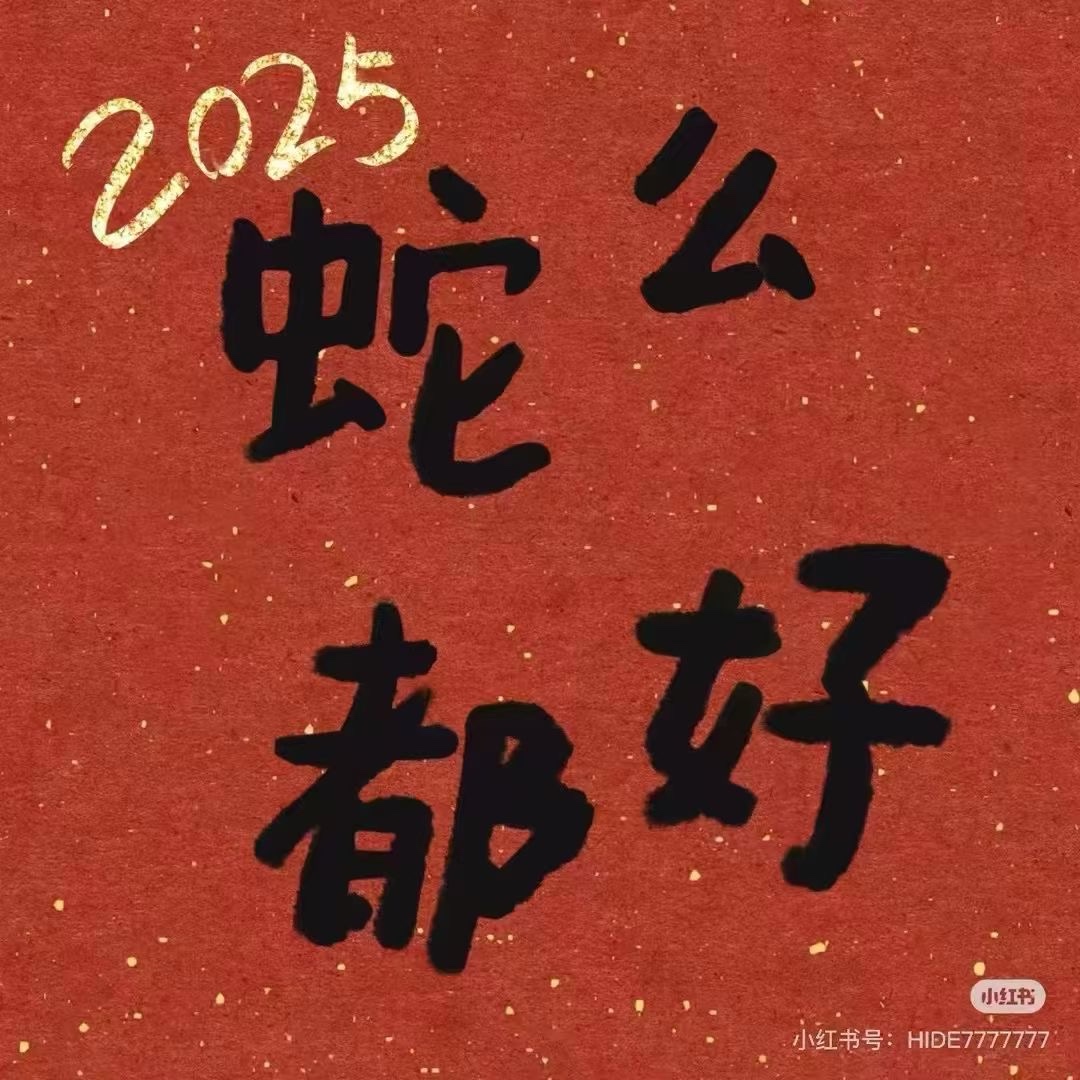 2025
蛇么
都好
小红书
小红书号：HIDE7777777